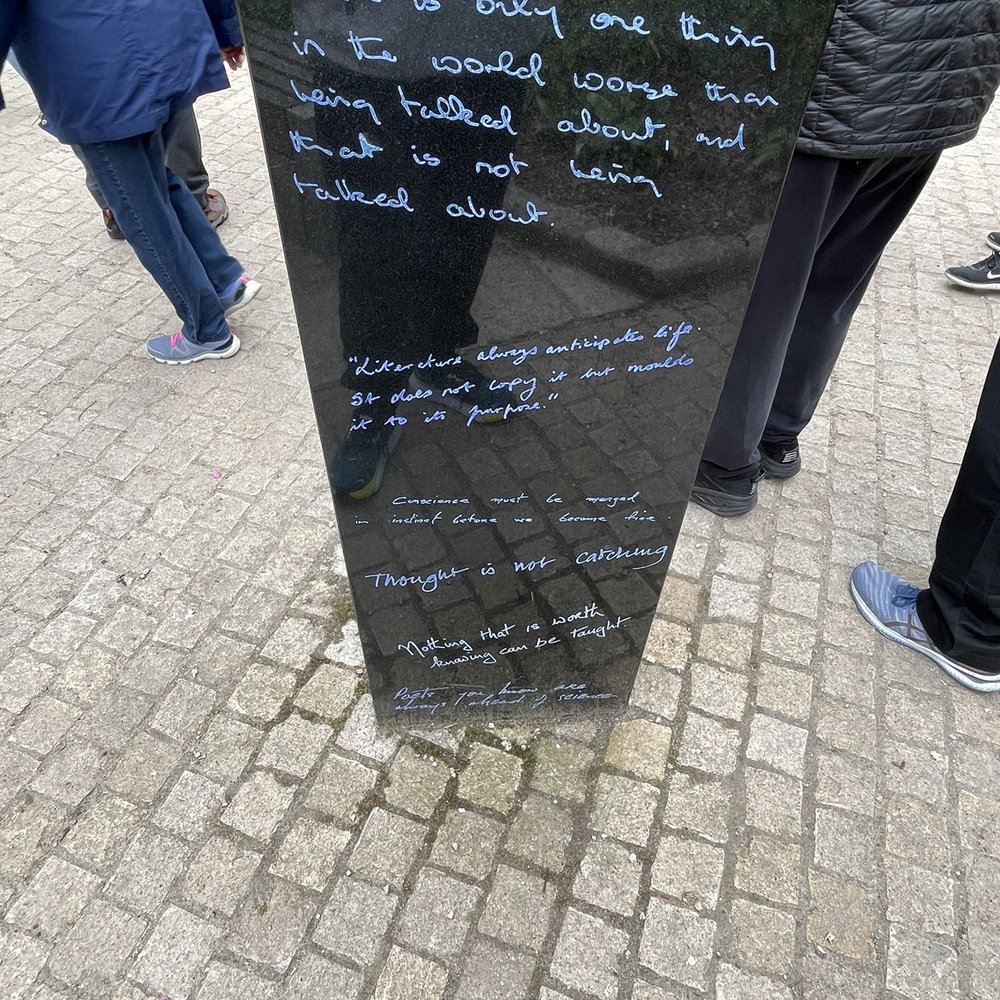 is only one thing
in the world worse than
being talked about, and
that is not being
talked about.
"Literature always anticipates life.
It does not copy it but moulds
it to its purpose."
Conscience must be merged
in instinct before we become fine.
Thought is not catching
Nothing that is worth
knowing can be taught
Poets you know are
always ahead of science